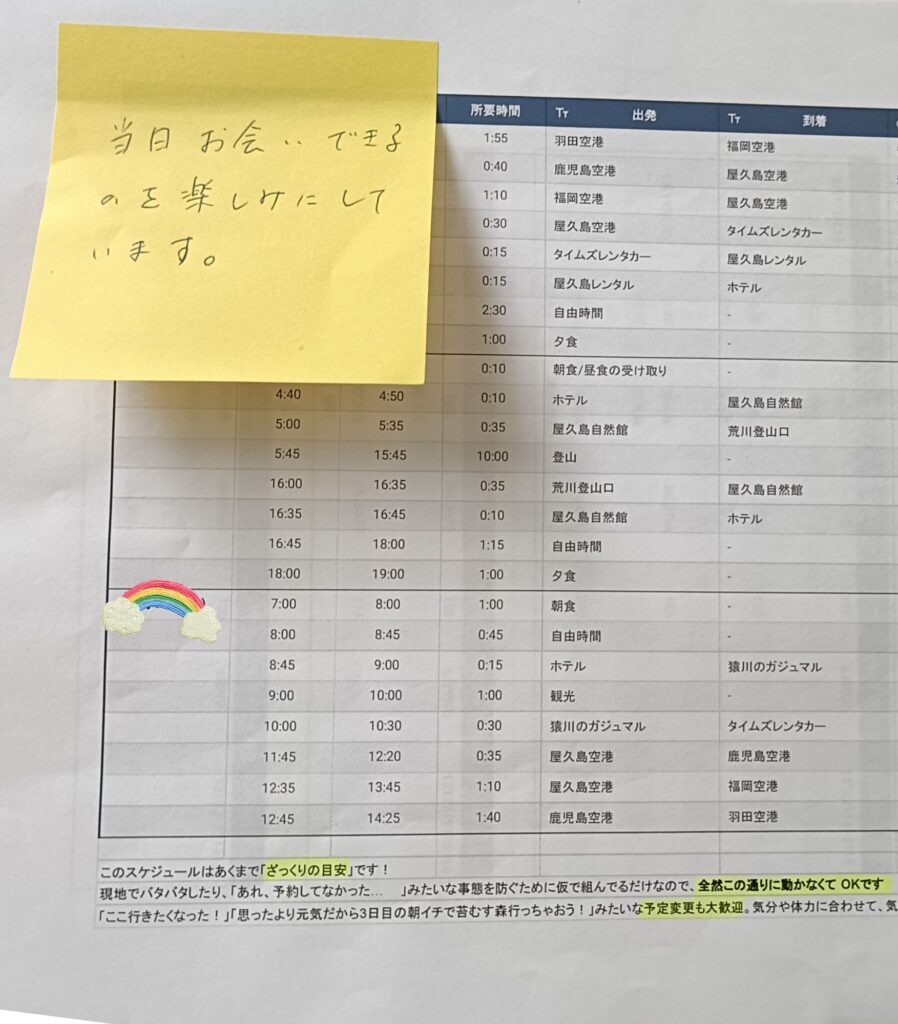 当日お会いできる
のを楽しみにして
います。
所要時間 Tт 出発 Tт 到着
1:55 羽田空港 福岡空港
0:40 鹿児島空港 屋久島空港
1:10 福岡空港 屋久島空港
0:30 屋久島空港 タイムズレンタカー
0:15 タイムズレンタカー 屋久島レンタル
0:15 屋久島レンタル ホテル
2:30 自由時間 -
1:00 夕食 -
0:10 朝食/昼食の受け取り -
4:40 4:50 0:10 ホテル 屋久島自然館
5:00 5:35 0:35 屋久島自然館 荒川登山口
5:45 15:45 10:00 登山 -
16:00 16:35 0:35 荒川登山口 屋久島自然館
16:35 16:45 0:10 屋久島自然館 ホテル
16:45 18:00 1:15 自由時間 -
18:00 19:00 1:00 夕食 -
7:00 8:00 1:00 朝食 -
8:00 8:45 0:45 自由時間 -
8:45 9:00 0:15 ホテル 猿川のガジュマル
9:00 10:00 1:00 観光 -
10:00 10:30 0:30 猿川のガジュマル タイムズレンタカー
11:45 12:20 0:35 屋久島空港 鹿児島空港
12:35 13:45 1:10 屋久島空港 福岡空港
12:45 14:25 1:40 鹿児島空港 羽田空港
このスケジュールはあくまで「ざっくりの目安」です！
現地でバタバタしたり、「あれ、予約してなかった… 」みたいな事態を防ぐために仮で組んでるだけなので、全然この通りに動かなくて OKです
「ここ行きたくなった！」「思ったより元気だから3日目の朝イチで苔むす森行っちゃおう！」みたいな予定変更も大歓迎。気分や体力に合わせて、気